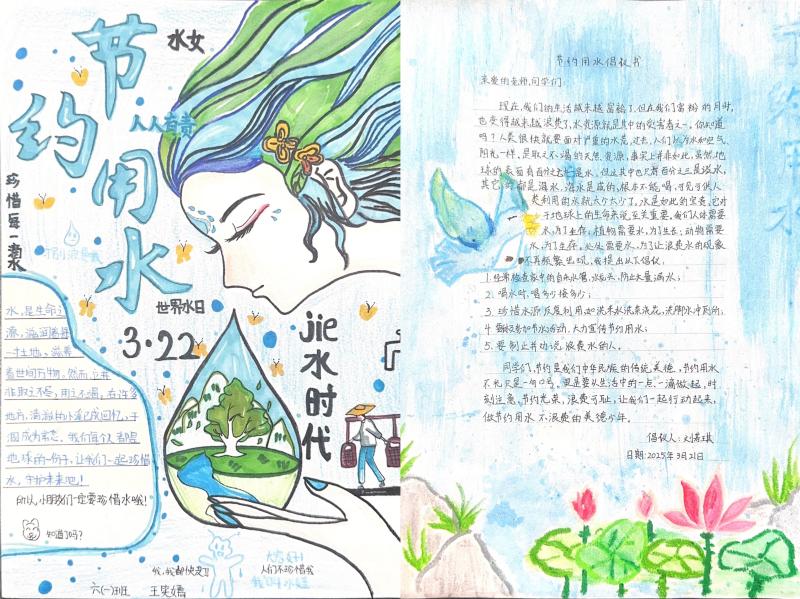 节约用水
水女
人人有责
珍惜每一滴水
别浪费我
世界水日
3·22
jie水时代
水,是生命之
源,滋润着每
一寸土地、滋养
着世间万物。然而,它并
非取之不尽,用之不竭。有许多
地方,清澈的小溪已成回忆,干
涸成为常态。我们每个人都是
地球的一份子,让我们一起珍惜
水,守护未来吧!
所以,小朋友们一定要珍惜水哦!
知道了吗?
大家好!
人们不珍惜我
我
六(一)班
节约用水倡议书
亲爱的老师,同学们:
现在,我们的生活越来越富裕了,但在我们富裕的同时,
也变得越来越浪费了,水资源就是其中的受害者之一。你知道
吗?人类很快就要面对严重的水荒,过去,人们认为水如空气、
阳光一样,是取之不竭的天然资源,事实上并非如此,虽然地
球的表面有百分之七十是水,但这其中也只有百分之三是淡水,
其它的都是海水,海水是咸的,根本不能喝,可见可供人
类利用的水就太少太少了,水是如此的宝贵,它对
于地球上的生命来说,至关重要。我们人体需要
水,为了生存,植物需要水,为了生长;动物需要
水,为了生存。处处需要水,为了让浪费水的现象
不再频繁出现,我提出以下倡议:
1.经常检查家中的自来水管,水龙头,防止大量漏水;
2.喝水时,喝多少接多少;
3.珍惜水源,反复利用,如洗米水洗菜浇花,洗脚水冲厕所;
4.积极参加节水活动,大力宣传节约用水;
5.要制止并劝说浪费水的人。
同学们,节约是我们中华民族的传统美德,节约用水
不光只是一句口号,更是要从生活中的一点一滴做起,时
刻注意,节约光荣,浪费可耻,让我们一起行动起来,
做节约用水不浪费的美德少年。
倡议人:刘若琪
日期:2025年3月21日